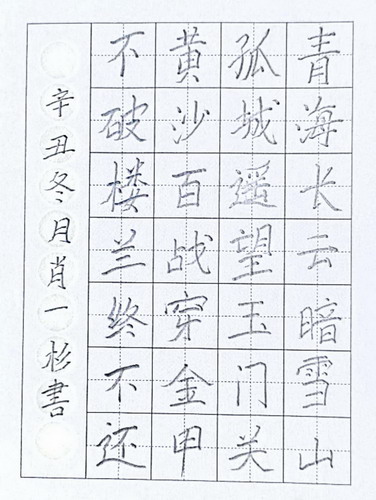 青海长云暗雪山
孤城遥望玉门关
黄沙百战穿金甲
不破楼兰终不还
辛丑冬月肖一杉書